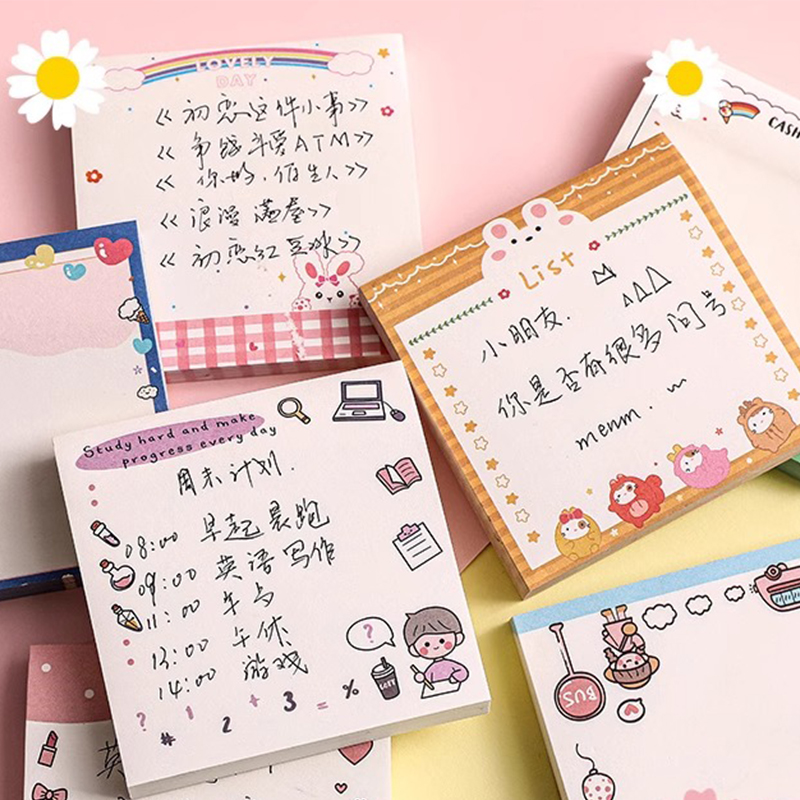 LOVELY
DAY
<<初恋这件小事>>
<<争钱斗爱ATM>>
<<你好,陌生人>>
<<浪漫满屋>>
<<初恋红豆冰>>
CASH
List
小朋友.
你是否有很多问号
menm.
Study hard and make
progress every day
周末计划.
08:00 早起晨跑
09:00 英语写作
11:00 午
13:00 午休
14:00 游戏
?
? 1 + 3 = %
# 2
BUS
英